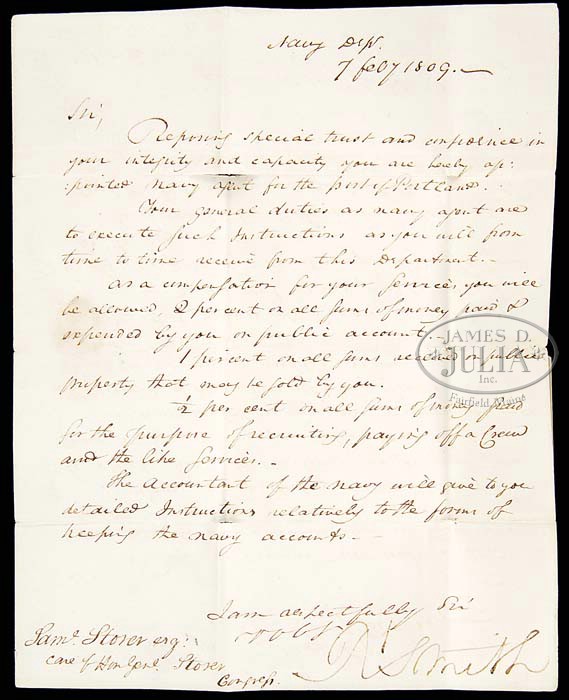 Navy Dept.
7 Feby 1809.—
Sir,
Reposing special trust and confidence in
your integrity and capacity you are hereby ap:
:pointed Navy agent for the port of Portland.
Your general duties as navy agent are
to execute such Instructions as you will from
time to time receive from this Department.-
as a compensation for your services you will
be allowed, 2 percent on all sums of money paid &
expended by you on public account.-
1 percent on all sums received on public
property that may be sold by you.
½ per cent on all sums of money paid
for the purpose of recruiting, paying off a Crew
and the like services.-
The accountant of the navy will give to you
detailed Instructions relatively to the forms of
keeping the navy accounts-
I am respectfully Sir
Yr Obt St
Rt Smith
Saml. Storer esq:
care of Hon Genl. Storer
Congress.
JAMES D.
JULIA
Inc.
Fairfield, Maine